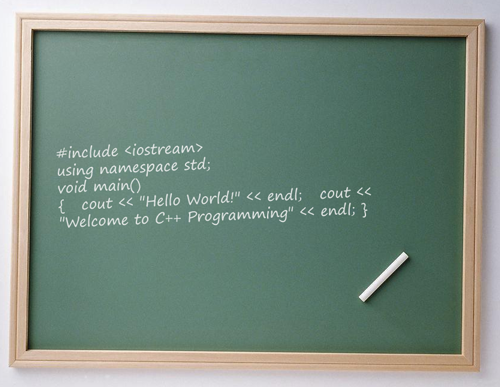 #include <iostream>
using namespace std;
void main()
{ cout << "Hello World!" << endl; cout <<
"Welcome to C++ Programming" << endl; }